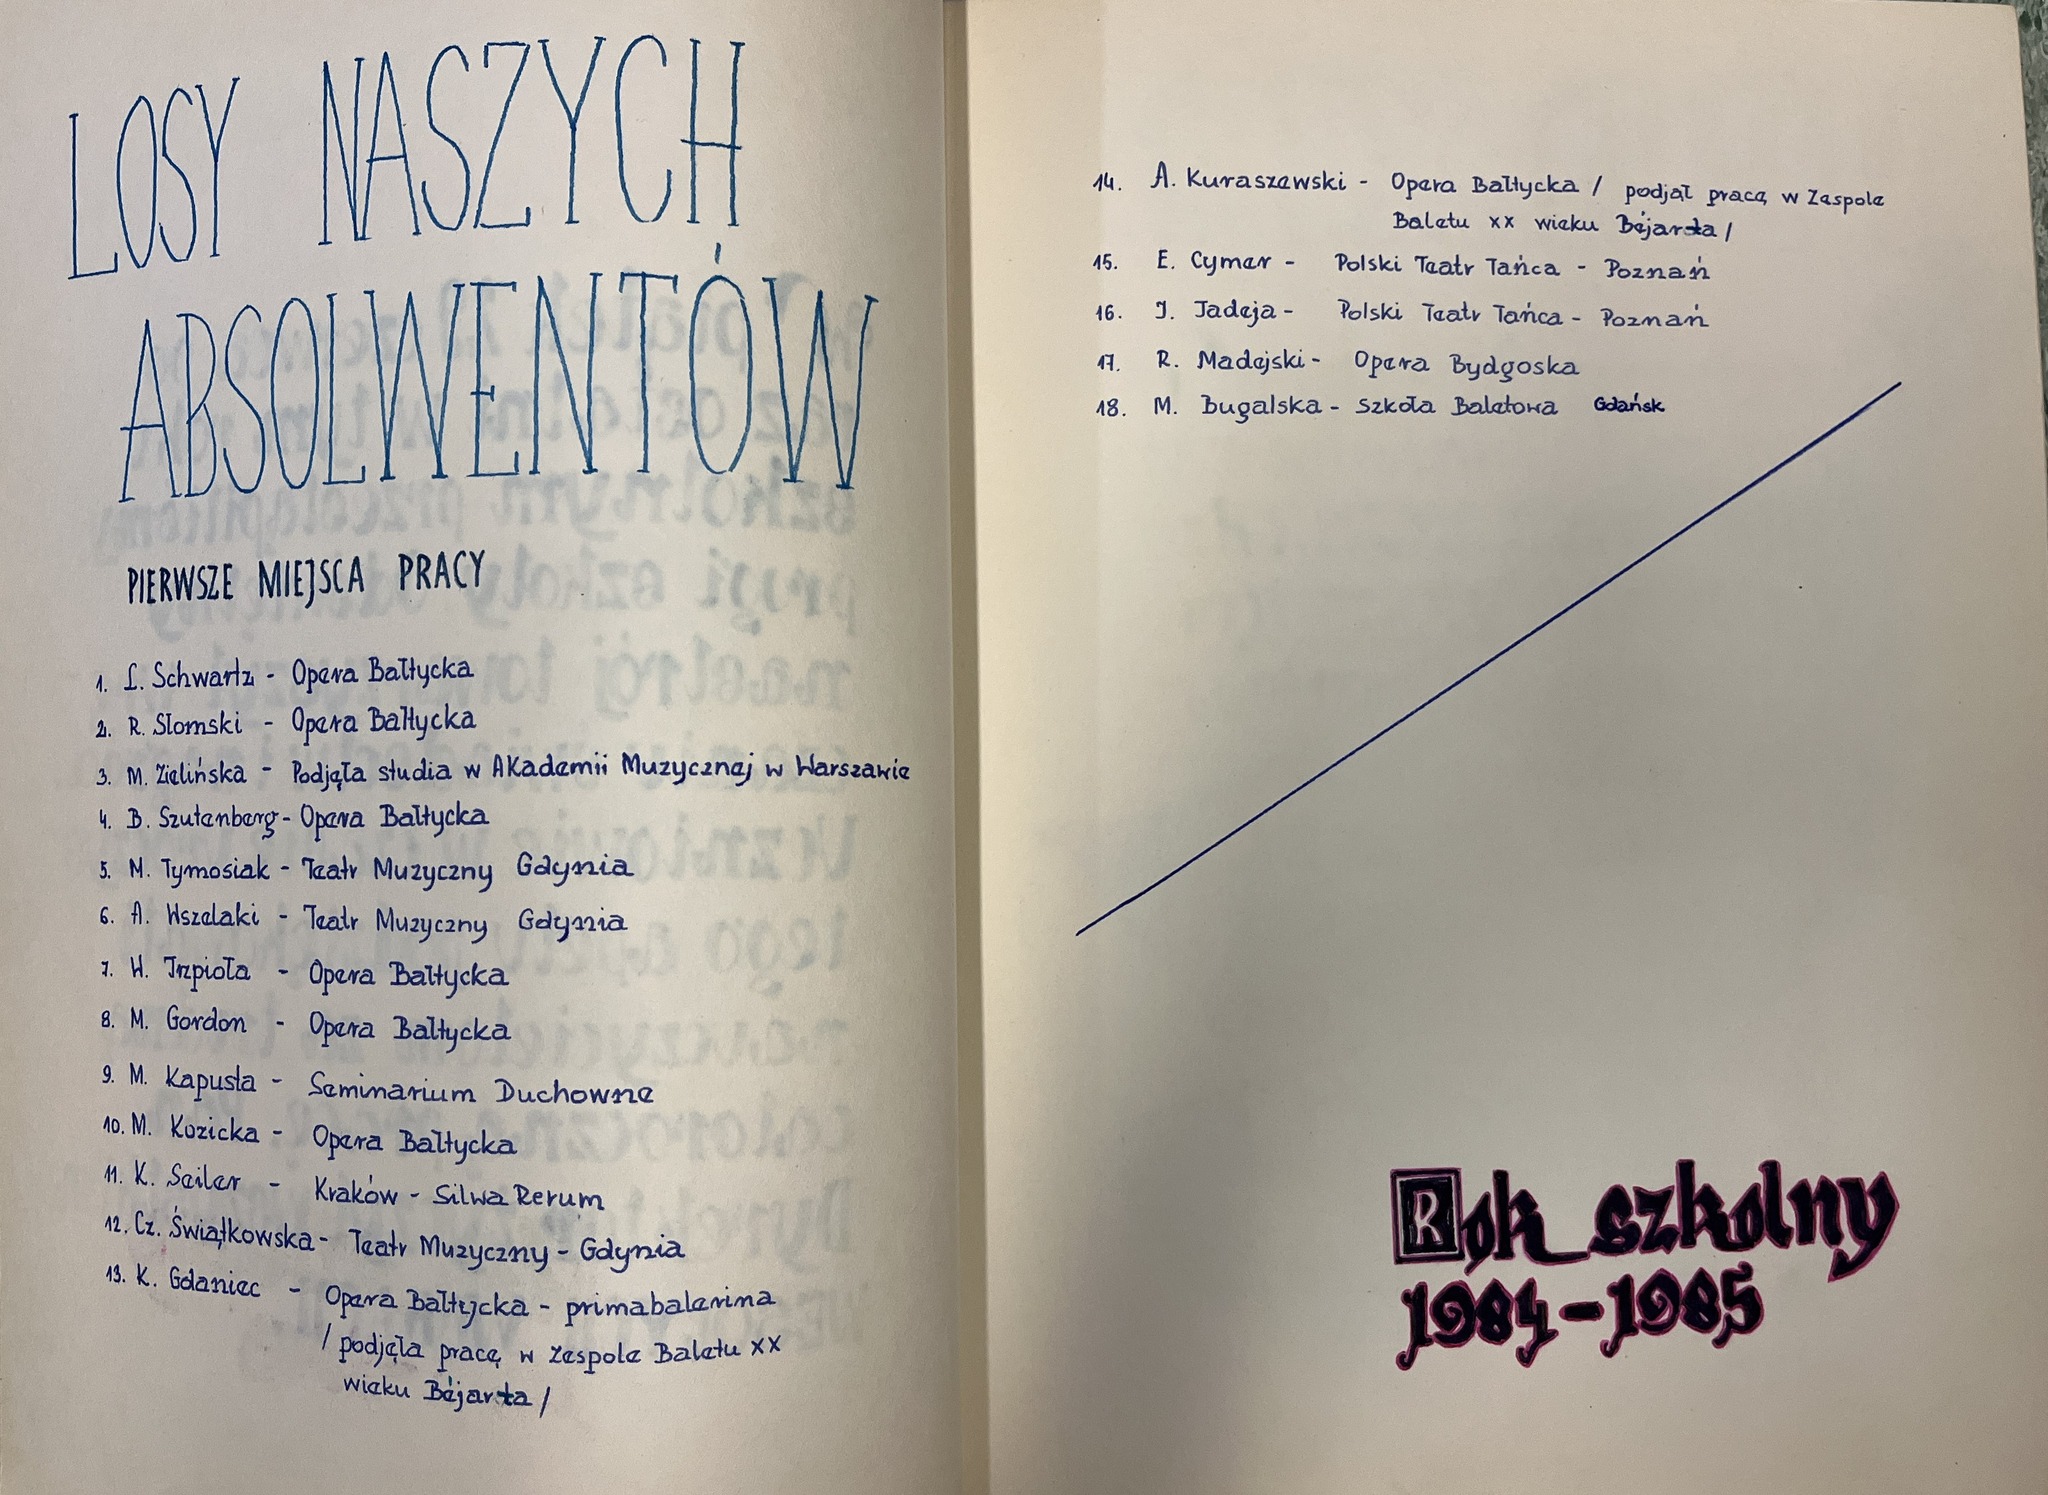 LOSY NASZYCH
ABSOLWENTÓW
PIERWSZE MIEJSCA PRACY
1. L. Schwartz - Opera Bałtycka
2. R. Słomski - Opera Bałtycka
3. M. Zielińska - Podjęła studia w Akademii Muzycznej w Warszawie
4. B. Szutenberg - Opera Bałtycka
5. M. Tymosiak - Teatr Muzyczny Gdynia
6. A. Wszelaki - Teatr Muzyczny Gdynia
7. W. Trzpioła - Opera Bałtycka
8. M. Gordon - Opera Bałtycka
9. M. Kapusta - Seminarium Duchowne
10. M. Kozicka - Opera Bałtycka
11. K. Seiler - Kraków - Silwa Rerum
12. Cz. Świątkowska - Teatr Muzyczny - Gdynia
13. K. Gdaniec - Opera Bałtycka - primabalerina
/ podjęła pracę w Zespole Baletu XX
wieku Béjarta /
14. A. Kuraszewski - Opera Bałtycka / podjął pracę w Zespole
Baletu XX wieku Béjarta /
15. E. Cymer - Polski Teatr Tańca - Poznań
16. J. Jadeja - Polski Teatr Tańca - Poznań
17. R. Madejski - Opera Bydgoska
18. M. Bugalska - Szkoła Baletowa Gdańsk
Rok szkolny
1984-1985